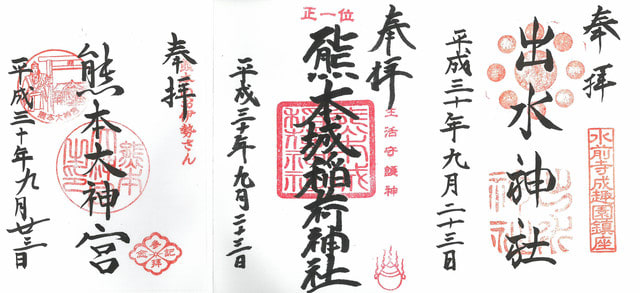 奉拝
出水神社
水前寺成趣園鎮座
平成三十年九月二十三日
奉拝
正一位
熊本城稲荷神社
生活守護神
平成三十年九月二十三日
奉拝
お伊勢さん
熊本大神宮
参拝記念
平成三十年九月廿三日